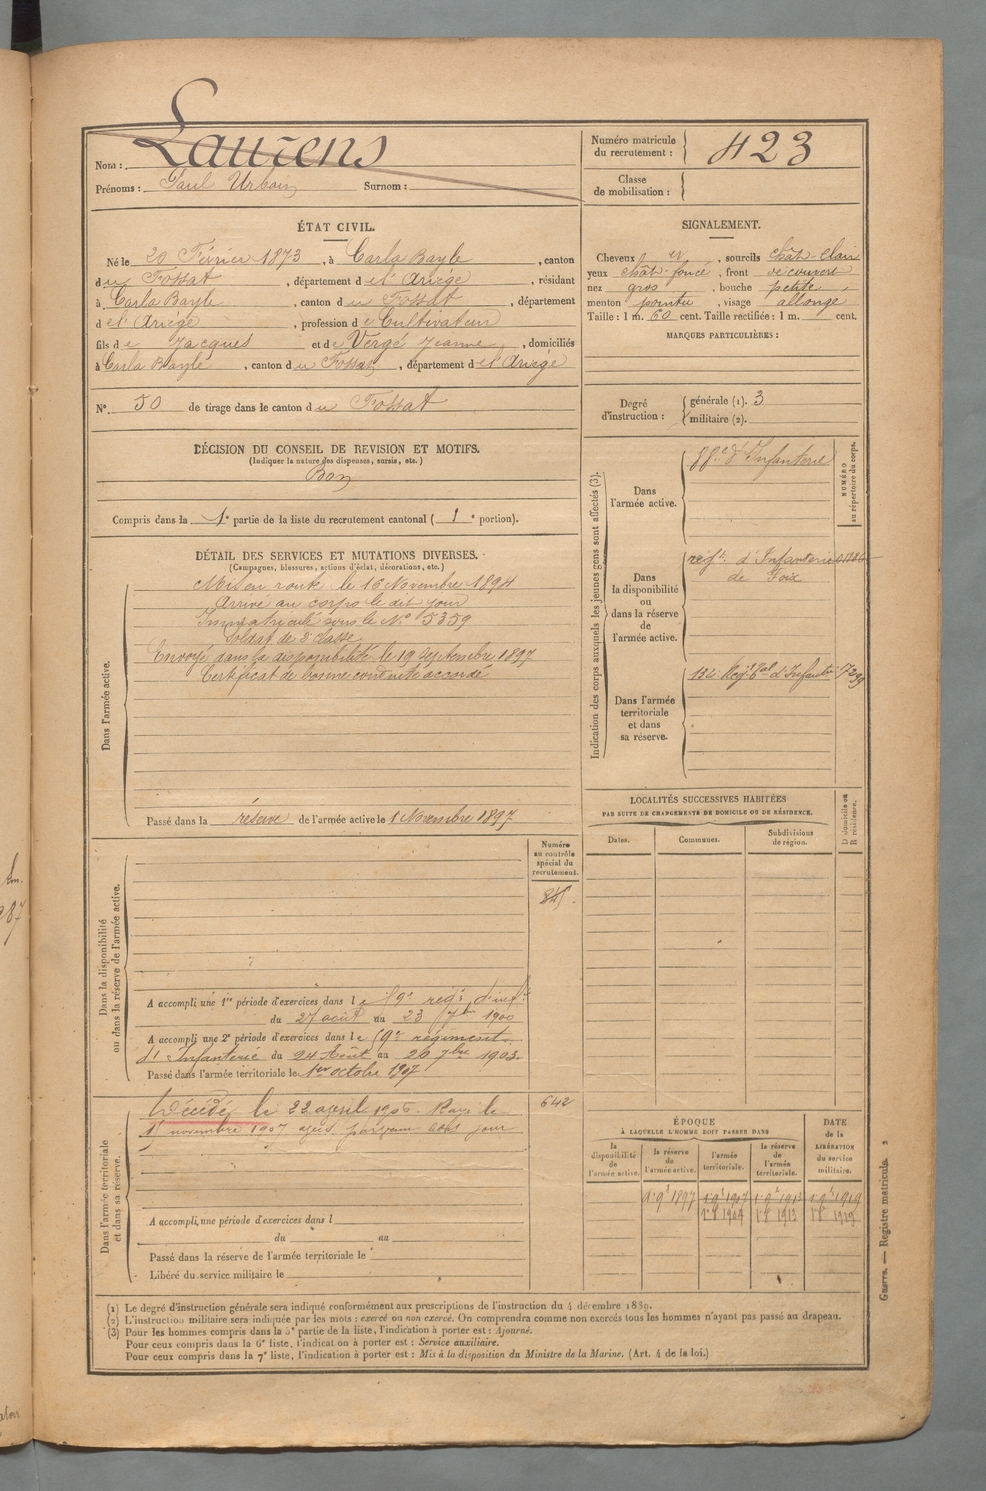 Nom : Laurens
Prénoms : Paul Urbain Surnom :
Numéro matricule du recrutement : 423
Classe de mobilisation :
ÉTAT CIVIL.
Né le 20 Février 1873, à Carla Bayle, canton
du Fossat, département de l'Ariège, résidant
à Carla Bayle, canton du Fossat, département
de l'Ariège, profession de Cultivateur
fils de Jacques et de Vergé Jeanne, domiciliés
à Carla Bayle, canton du Fossat, département de l'Ariège
N° 50 de tirage dans le canton du Fossat
SIGNALEMENT.
Cheveux et, sourcils chât-clair
yeux chât-foncé, front découvert
nez gros, bouche petite,
menton pointu, visage allongé
Taille : 1 m. 60 cent. Taille rectifiée : 1 m. cent.
MARQUES PARTICULIÈRES :
Degré d'instruction : générale (1). 3
militaire (2).
DÉCISION DU CONSEIL DE REVISION ET MOTIFS.
(Indiquer la nature des dispenses, sursis, etc.)
Bon
Compris dans la 1e partie de la liste du recrutement cantonal (1e portion).
DÉTAIL DES SERVICES ET MUTATIONS DIVERSES.
(Campagnes, blessures, actions d'éclat, décorations, etc.)
Dans l'armée active.
Mis en route le 16 Novembre 1894
Arrivé au corps le dit jour
Immatriculé sous le N° 5359
Soldat de 2e classe
Envoyé dans la disponibilité le 19 Septembre 1897
Certificat de bonne conduite accordé
Passé dans la réserve de l'armée active le 1 Novembre 1897
Indication des corps auxquels les jeunes gens sont affectés (3).
NUMÉRO au répertoire du corps.
Dans l'armée active.
88e d'Infanterie
Dans la disponibilité ou dans la réserve de l'armée active.
regt. d'Infanterie
de Foix
Dans l'armée territoriale et dans sa réserve.
LOCALITÉS SUCCESSIVES HABITÉES
PAR SUITE DE CHANGEMENTS DE DOMICILE OU DE RÉSIDENCE.
Dates. Communes. Subdivisions de région. D domicile ou R résidence.
Dans la disponibilité ou dans la réserve de l'armée active.
Numéro au contrôle spécial du recrutement.
A accompli une 1re période d'exercices dans le 59e regt d'inf.
du 27 août au 23 7bre 1900
A accompli une 2e période d'exercices dans le 59e régiment
d'Infanterie du 24 Août au 20 7bre 1903.
Passé dans l'armée territoriale le 1er octobre 1907
Dans l'armée territoriale et dans sa réserve.
Décédé le 22 avril 1906. Rayé le 642
novembre 1907
A accompli une période d'exercices dans l
du au
Passé dans la réserve de l'armée territoriale le
Libéré du service militaire le
ÉPOQUE
À LAQUELLE L'HOMME DOIT PASSER DANS
la disponibilité de l'armée active. la réserve de l'armée active. l'armée territoriale. la réserve de l'armée territoriale.
DATE de la LIBÉRATION du service militaire.
1 9e 1897 1 9e 1907 1 9e 1913 1 9e 1919
Guerre. — Registre matricule. 2
(1) Le degré d'instruction générale sera indiqué conformément aux prescriptions de l'instruction du 4 décembre 1889.
(2) L'instruction militaire sera indiquée par les mots : exercé ou non exercé. On comprendra comme non exercés tous les hommes n'ayant pas passé au drapeau.
(3) Pour les hommes compris dans la 5e partie de la liste, l'indication à porter est : Ajourné.
Pour ceux compris dans la 6e liste, l'indication à porter est : Service auxiliaire.
Pour ceux compris dans la 7e liste, l'indication à porter est : Mis à la disposition du Ministre de la Marine. (Art. 4 de la loi.)